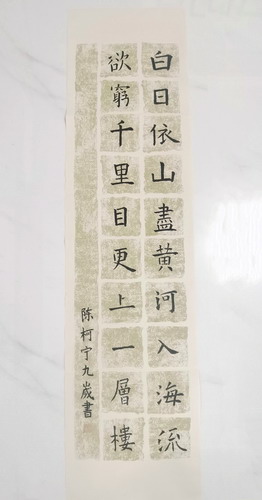 白日依山盡黄河入海流
欲窮千里目更上一層樓
陈柯宇九歲書